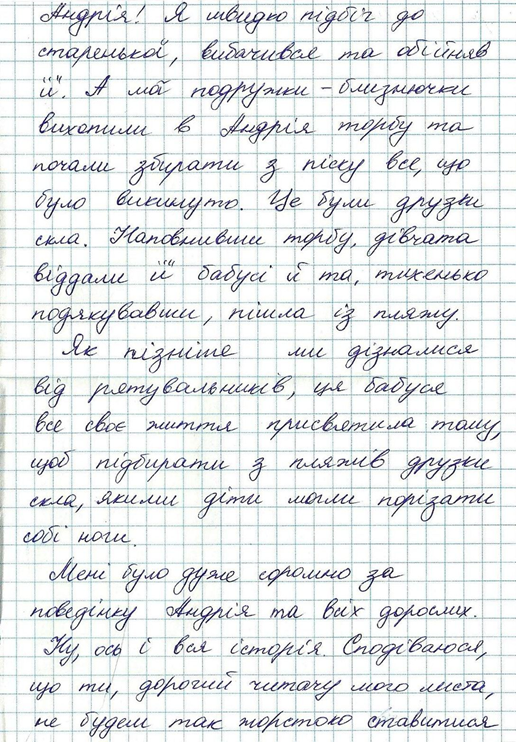 Андрія! Я швидко підбіг до
старенької, вибачився та обійняв
її. А мої подружки – близнючки
вихопили в Андрія торбу та
почали збирати з піску все, що
було викинуто. Це були друзки
скла. Наповнивши торбу, дівчата
віддали її бабусі й та, тихенько
подякувавши, пішла із пляжу.
Як пізніше ми дізналися
від рятувальників, ця бабуся
все своє життя присвятила тому,
щоб підбирати з пляжів друзки
скла, якими діти могли порізати
собі ноги.
Мені було дуже соромно за
поведінку Андрія та всіх дорослих.
Ну, ось і вся історія. Сподіваюся,
що ти, дорогий читачу мого листа,
не будеш так жорстоко ставитися